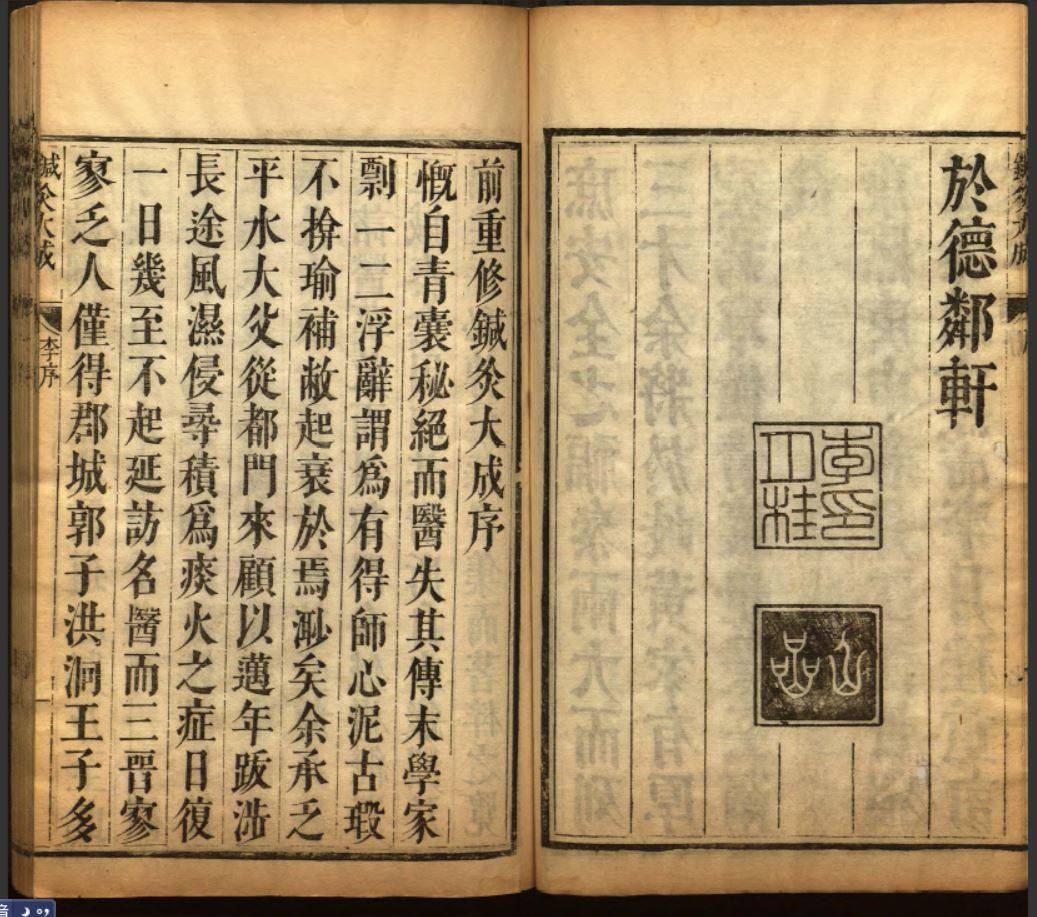 鍼灸大成
於德鄰軒
李印
月桂
前重修鍼灸大成序
慨自青囊秘絕而醫失其傳末學家
剽一二浮辭謂爲有得師心泥古瑕
不揜瑜補敝起衰於焉渺矣余承乏
平水大父從都門來顧以邁年跋涉
長途風濕侵尋積爲痰火之症日復
一日幾至不起延訪名醫而三晉寥
寥乏人僅得郡城郭子洪洞王子多
鍼灸大成 李序 一